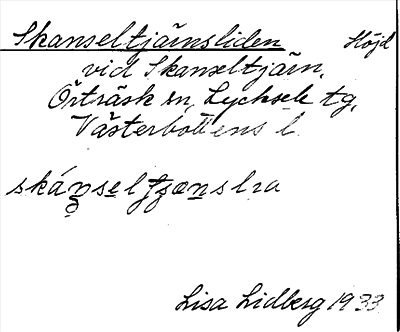 Skanseltjärnsliden Höjd
vid Skanseltjärn,
Örträsk sn, Lycksele tg,
Västerbottens l.
Lisa Lidberg 1933